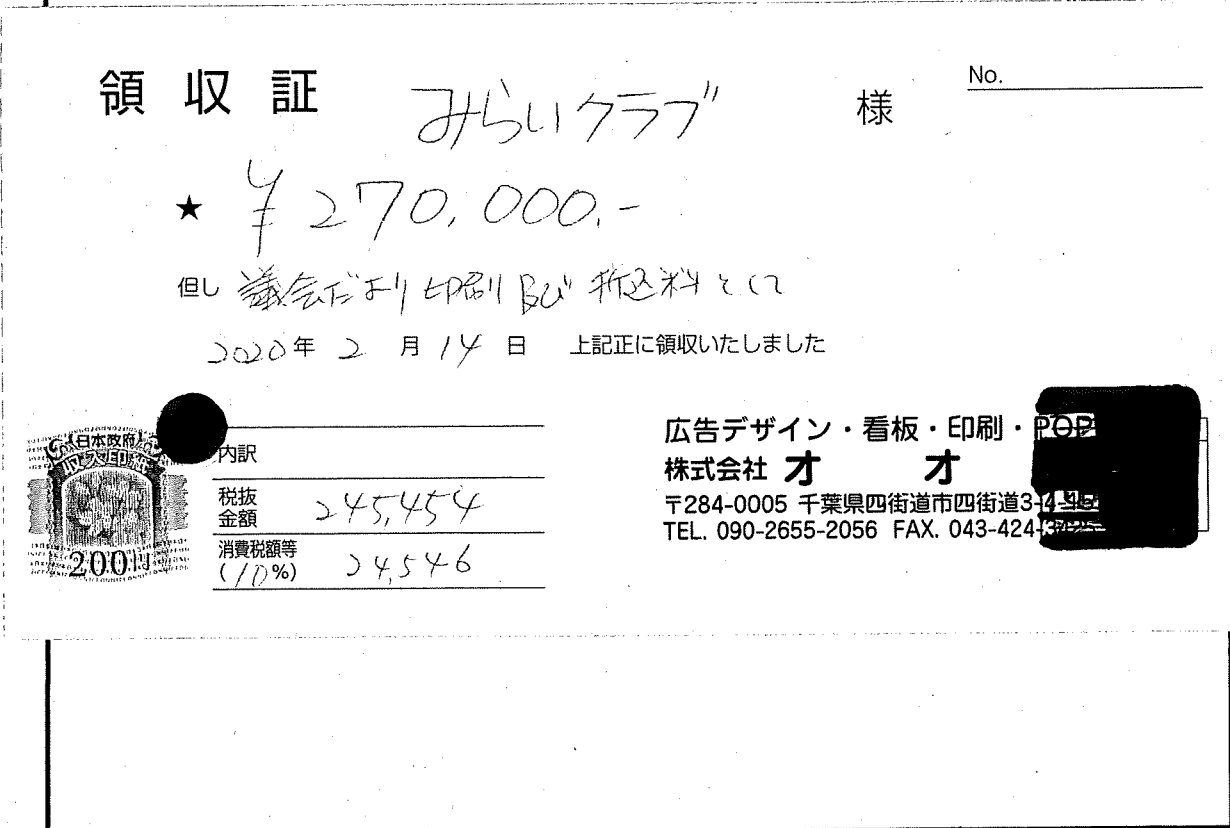 領収証 みらいクラブ 様 No.
★ ¥270,000.-
但し 議会だより印刷及び折込料として
2020年2月14日 上記正に領収いたしました
日本政府
収入印紙
200円
内訳
税抜金額 245,454
消費税額等(10%) 24,546
広告デザイン・看板・印刷・POP
株式会社 オ オ
〒284-0005 千葉県四街道市四街道3-4-
TEL. 090-2655-2056 FAX. 043-424-